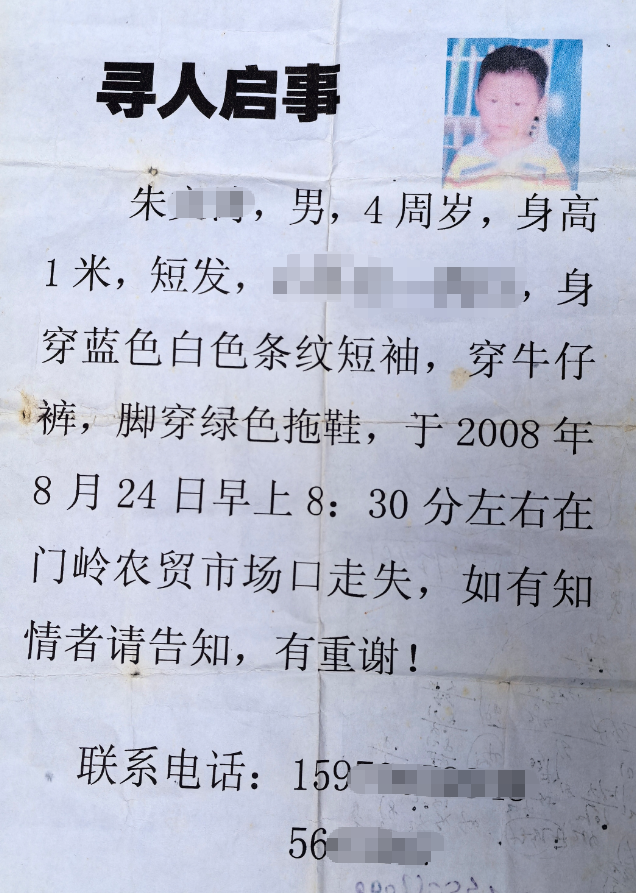 寻人启事
朱，男，4周岁，身高
1米，短发，，身
穿蓝色白色条纹短袖，穿牛仔
裤，脚穿绿色拖鞋，于2008年
8月24日早上8：30分左右在
门岭农贸市场口走失，如有知
情者请告知，有重谢！
联系电话：159
56